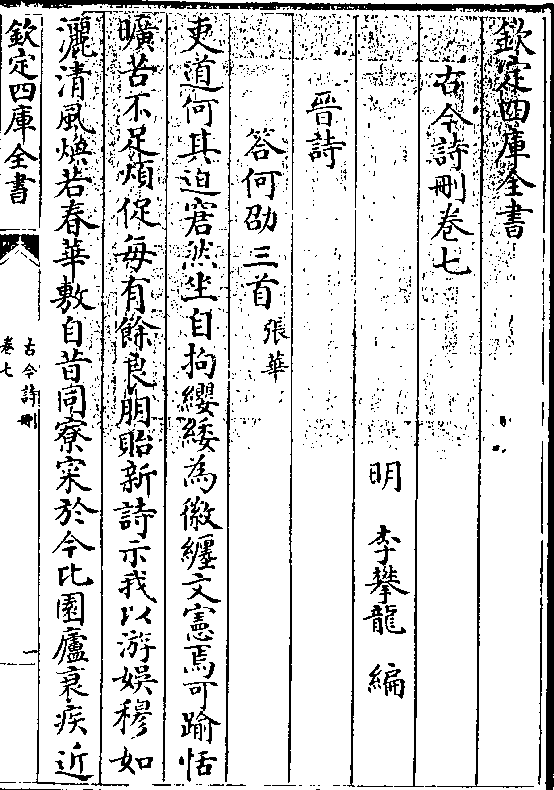 欽定四庫全書
古今詩刪卷七
明 李攀龍 編
晉詩
答何劭三首 張華
吏道何其迫窘然坐自拘纓緌為徽纆文憲焉可踰恬
曠苦不足煩促每有餘良朋貽新詩示我以游娱穆如
灑清風煥若春華敷自昔同寮寀於今比園廬衰疾近
欽定四庫全書
古今詩刪
卷七
一